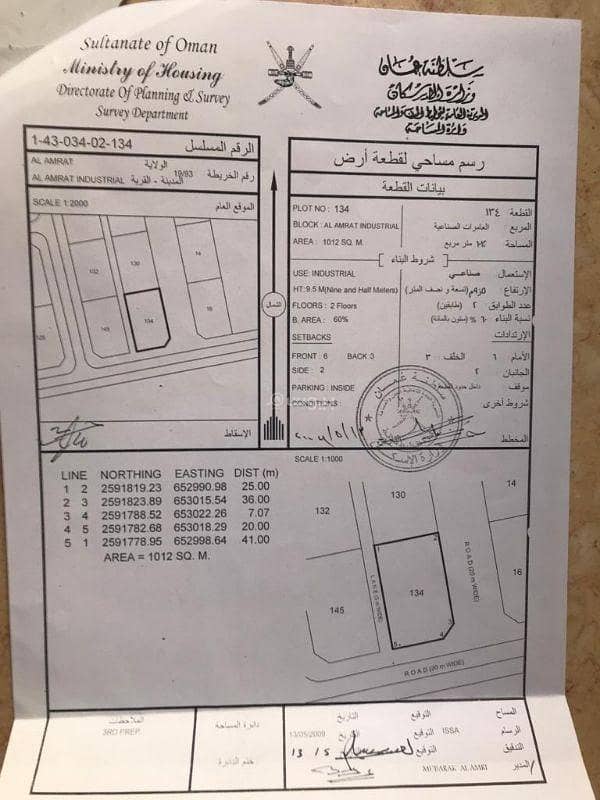 Sultanate of Oman
Ministry of Housing
Directorate Of Planning & Survey
Survey Department
سلطنة عمان
وزارة الإسكان
المديرية العامة للتخطيط والمساحة
دائرة المساحة
1-43-034-02-134 الرقم المسلسل
AL AMRAT الولاية
AL AMRAT INDUSTRIAL المدينة - القرية
19/93 رقم الخريطة
SCALE 1:2000 الموقع العام
132
130
14
145
134
16
الشمال
الإسقاط
رسم مساحي لقطعة أرض
بيانات القطعة
PLOT NO : 134 القطعة ١٣٤
BLOCK : AL AMRAT INDUSTRIAL المربع العامرات الصناعية
AREA : 1012 SQ. M. المساحة ١٠١٢ متر مربع
شروط البناء
USE: INDUSTRIAL الإستعمال صناعي
HT: 9.5 M(Nine and Half Meters) الإرتفاع ٩٫٥ م (تسعة و نصف المتر)
FLOORS : 2 Floors عدد الطوابق ٢ (طابقين)
B. AREA : 60% نسبة البناء ٦٠ % (ستون بالمائة)
SETBACKS الإرتدادات
FRONT : 6 BACK 3 الأمام ٦ الخلف ٣
SIDE : 2 الجانبان ٢
PARKING : INSIDE موقف داخل حدود القطعة
CONDITIONS: شروط أخرى
المخطط
SCALE 1:1000
LINE NORTHING EASTING DIST (m)
1 2 2591819.23 652990.98 25.00
2 3 2591823.89 653015.54 36.00
3 4 2591788.52 653022.26 7.07
4 5 2591782.68 653018.29 20.00
5 1 2591778.95 652998.64 41.00
AREA = 1012 SQ. M.
132
130
14
1
2
134
145
16
3
4
5
ROAD (20 m WIDE)
ROAD (20 m WIDE)
الملاحظات
3RD PREP.
دائرة المساحة
ختم الدائرة
المساح التوقيع التاريخ
الرسام ISSA التوقيع التاريخ 13/05/2009
التدقيق التوقيع
المدير MUBARAK AL AMRI